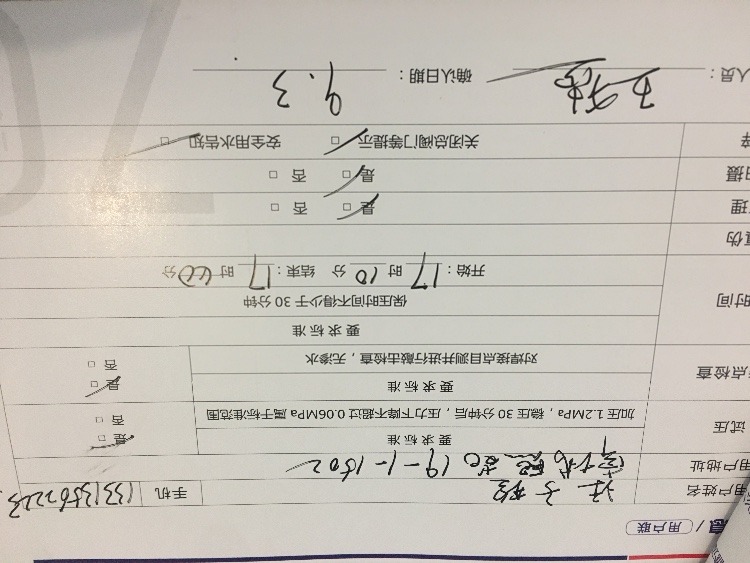 息 / 用户联
用户姓名 汪 手机
用户地址 19-1-1502
试压 要求标准 是 □
加压1.2MPa，稳压30分钟后，压力下降不超过0.06MPa属于标准范围 否 □
点检查 要求标准 是 □
对焊接点目测并进行敲击检查，无渗水 否 □
时间 要求标准
保压时间不得少于30分钟
开始：17时10分 结束：17时40分
真伪
理 是 □ 否 □
日摄 是 □ 否 □
关闭总阀门等提示 □ 安全用水告知 □
人员： 确认日期：9.3